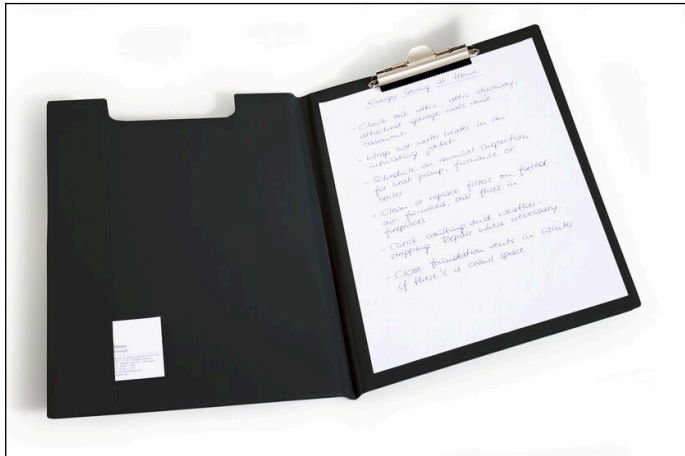 Energy Saving at Home
- Check out attic, attic stairway,
attached garage walls and
basement
- Wrap hot water heater in an
insulating jacket
- Schedule an annual inspection
for heat pump, furnance or
boiler
- Clean or replace filters on forced
air furnaces, seal flues in
fireplaces
- Check caulking and weather-
stripping. Repair where necessary
- Close foundation vents in winter
if there's a crawl space